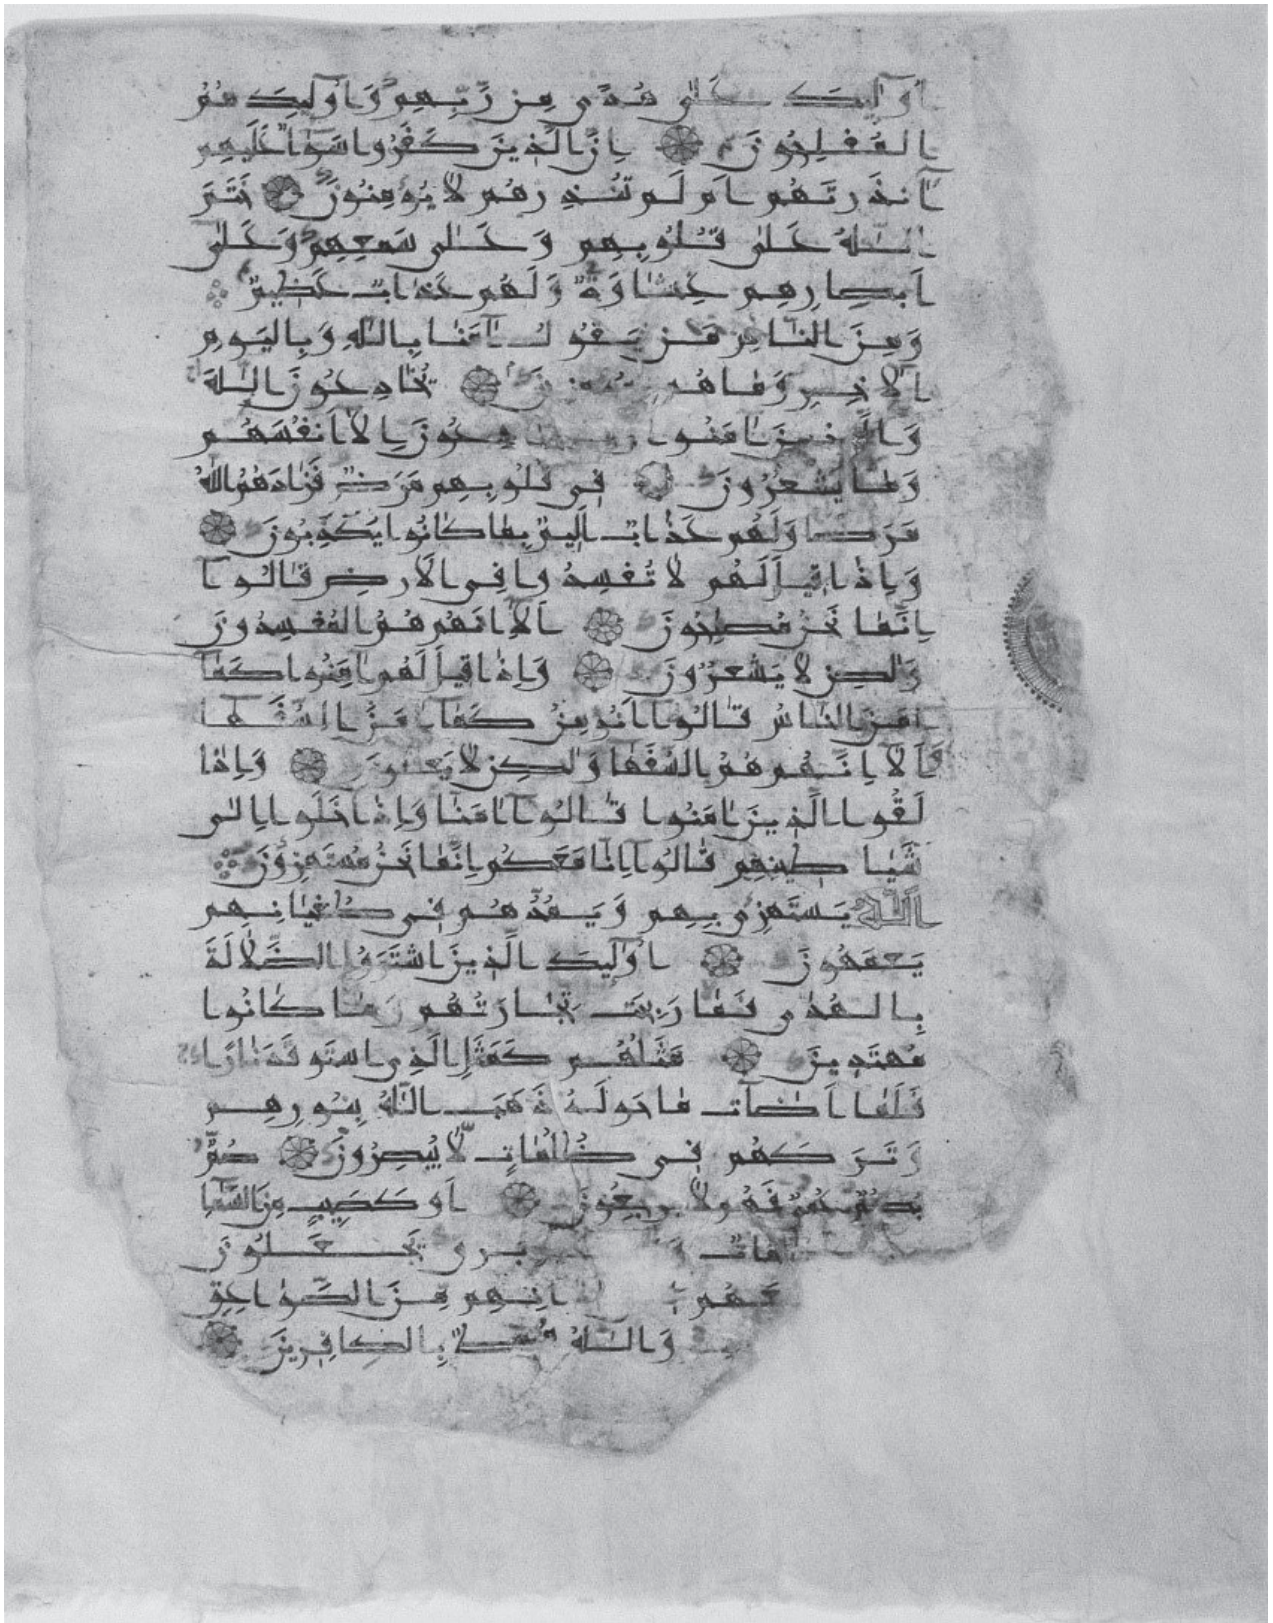 اوليك على هدى من ربهم واوليك هم
المفلحون ان الذين كفروا سوا عليهم
اانذرتهم ام لم تنذرهم لا يومنون ختم
الله على قلوبهم وعلى سمعهم وعلى
ابصارهم غشاوة ولهم عذاب عظيم
ومن الناس من يقول امنا بالله وباليوم
الاخر وما هم نين يخادعون الله
والذين امنوا وما يخدعون الا انفسهم
وما يشعرون في قلوبهم مرض فزادهم الله
مرضا ولهم عذاب اليم بما كانوا يكذبون
واذا قيل لهم لا تفسدوا في الارض قالوا
انما نحن مصلحون الا انهم هم المفسدون
ولكن لا يشعرون واذا قيل لهم امنوا كما
امن الناس قالوا انومن كما امن السفها
الا انهم هم السفها ولكن لا يعلمون واذا
لقوا الذين امنوا قالوا امنا واذا خلوا الى
شياطينهم قالوا انا معكم انما نحن مستهزون
الله يستهزى بهم ويمدهم في طغيانهم
يعمهون اوليك الذين اشتروا الضلالة
بالهدى فما ربحت تجارتهم وما كانوا
مهتدين مثلهم كمثل الذى استوقد نارا
فلما اضات ما حوله ذهب الله بنورهم
وتركهم في ظلمات لا يبصرون صم
بكم عمى فهم لا يرجعون او كصيب من السما
مات و برق يجعلون
عهم انهم من الصواعق
والله محيط بالكافرين